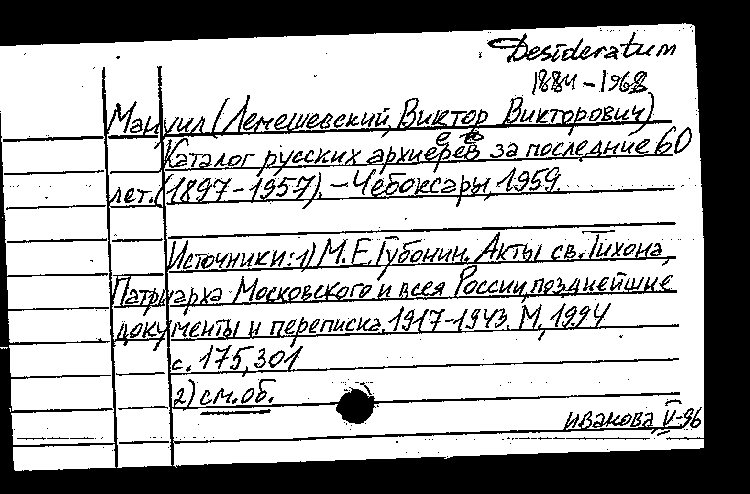 Desideratum
1884-1968
Мануил (Лемешевский, Виктор Викторович)
Каталог русских архиереев за последние 60
лет. (1897-1957). - Чебоксары, 1959
Источники: 1) М.Е. Губонин. Акты св. Тихона,
Патриарха Московского и всея России, позднейшие
документы и переписка. 1917-1943. М., 1994
с. 175, 301
2) см. об.
Иванова, V-96